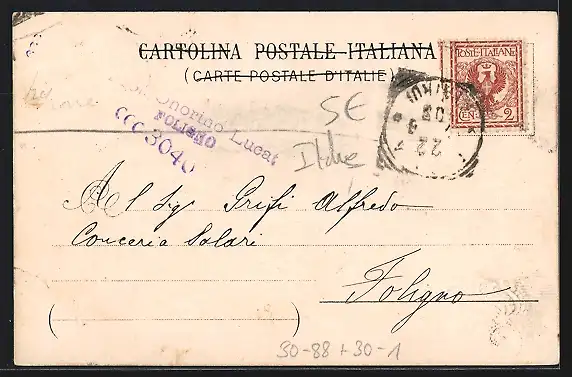 CARTOLINA POSTALE ITALIANA
(CARTE POSTALE D'ITALIE)
POSTE·ITALIANE
CENT. 2
5€
Onorino Lucat
FOLIGNO
CCC 3040
Al Sig Grifi Alfredo
Conceria Salari
Foligno
( )
30-88 + 30-1